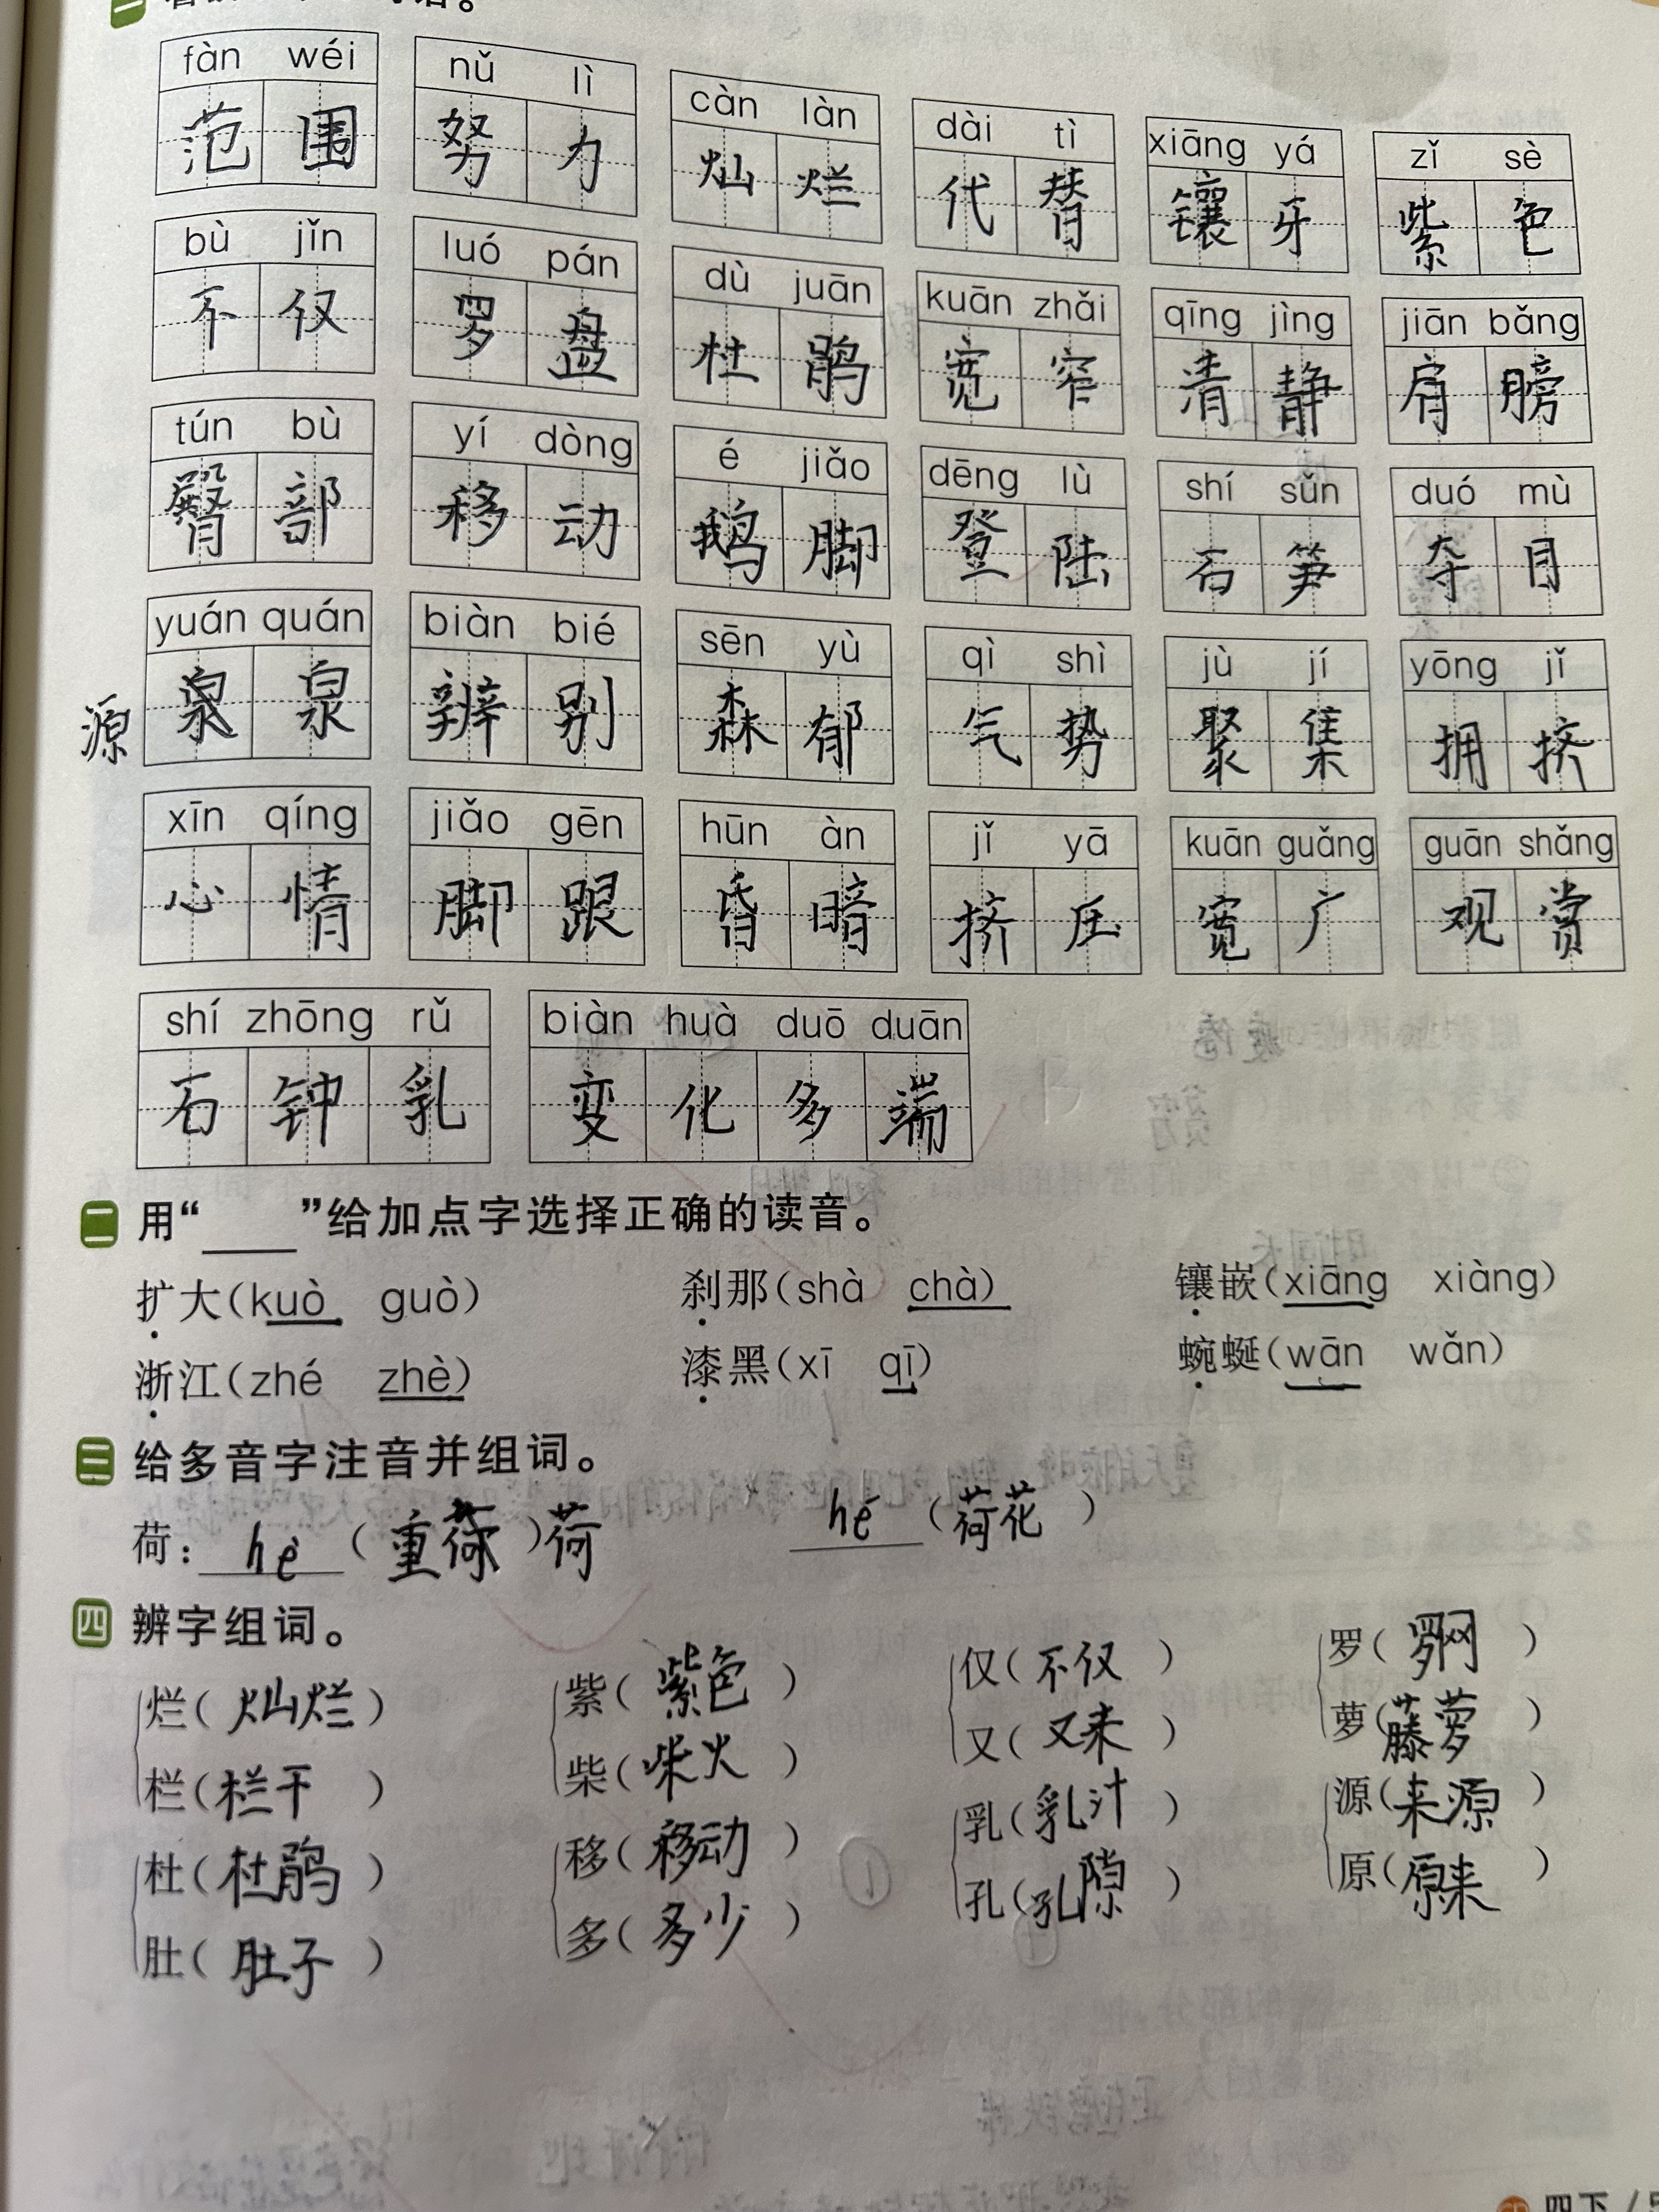 fàn wéi nǔ lì càn làn dài tì xiāng yá zǐ sè
范围 努力 灿烂 代替 镶牙 紫色
bù jǐn luó pán dù juān kuān zhǎi qīng jìng jiān bǎng
不仅 罗盘 杜鹃 宽窄 清静 肩膀
tún bù yí dòng é jiǎo dēng lù shí sǔn duó mù
臀部 移动 鹅脚 登陆 石笋 夺目
yuán quán biàn bié sēn yù qì shì jù jí yōng jǐ
源 泉 辨别 森郁 气势 聚集 拥挤
xīn qíng jiǎo gēn hūn àn jǐ yā kuān guǎng guān shǎng
心情 脚跟 昏暗 挤压 宽广 观赏
shí zhōng rǔ biàn huà duō duān
石钟乳 变化多端
二 用“ ”给加点字选择正确的读音。
扩大(kuò guò) 刹那(shà chà) 镶嵌(xiāng xiàng)
浙江(zhé zhè) 漆黑(xī qī) 蜿蜒(wān wǎn)
三 给多音字注音并组词。
荷: hè (重荷)荷 hé (荷花)
四 辨字组词。
烂(灿烂) 紫(紫色) 仅(不仅) 罗(罗网)
栏(栏干) 柴(柴火) 又(又来) 萝(藤萝)
杜(杜鹃) 移(移动) 乳(乳汁) 源(来源)
肚(肚子) 多(多少) 孔(孔隙) 原(原来)
四下